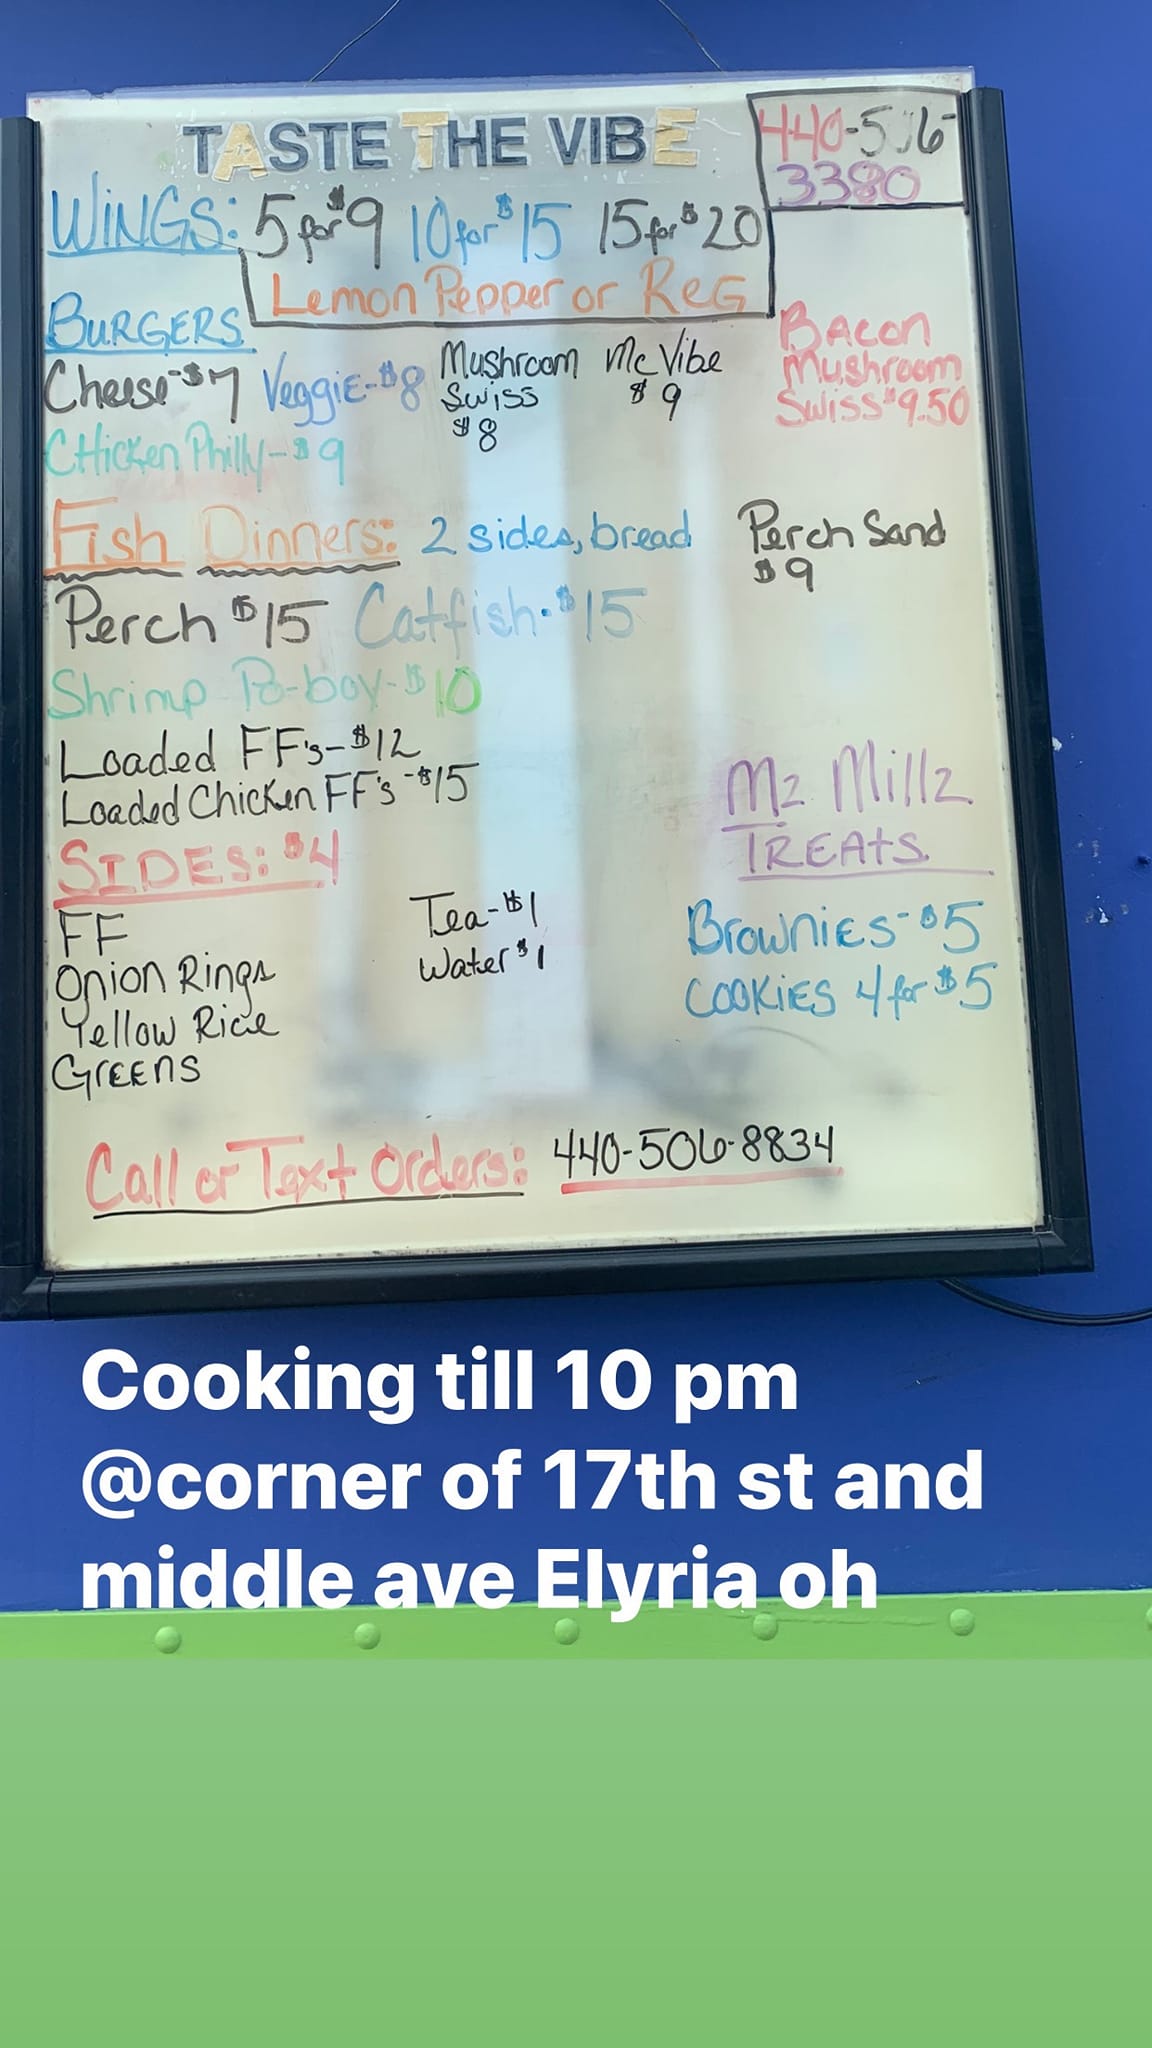 TASTE THE VIBE
440-506-
3380
WINGS: 5 for $9 10 for $15 15 for $20
Lemon Pepper or REG
BURGERS
Cheese-$7 Veggie-$8 Mushroom Swiss $8 McVibe $9
Bacon Mushroom Swiss $9.50
CHicken Philly-$9
Fish Dinners: 2 sides, bread
Perch Sand $9
Perch $15 Catfish-$15
Shrimp Po-boy-$10
Loaded FF's-$12
Loaded Chicken FF's-$15
Mz Millz
TREAtS
SIDES: $4
FF
Onion Rings
Yellow Rice
GrEEnS
Tea-$1
Water $1
BrownIES-$5
COOKIES 4 for $5
Call or Text Orders: 440-506-8834
Cooking till 10 pm
@corner of 17th st and
middle ave Elyria oh